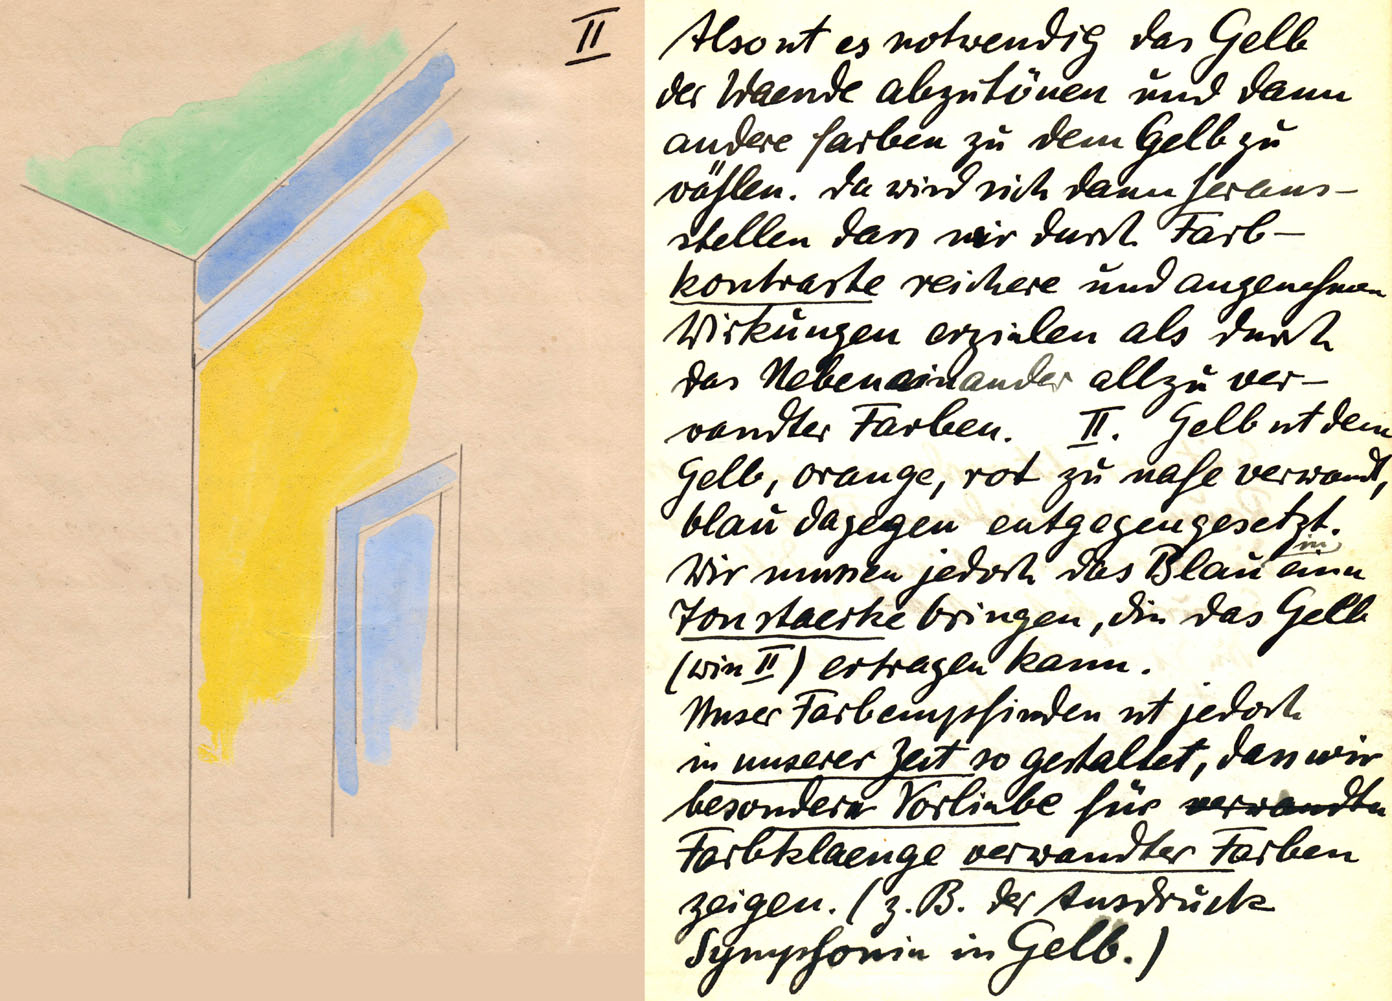 II
Also ist es notwendig das Gelb
der Waende abzutönen und dann
andere farben zu dem Gelb zu
wählen. da wird sich dann heraus-
stellen dass wir durch Farb-
kontraste reichere und angenehmere
Wirkungen erzielen als durch
das Nebeneinander allzu ver-
wandter Farben. II. Gelb ist dem
Gelb, orange, rot zu nahe verwandt,
blau dagegen entgegengesetzt.
Wir müssen jedoch das Blau in eine
Tonstaerke bringen, die das Gelb
(wie II) ertragen kann.
Unser Farbempfinden ist jedoch
in unserer Zeit so gestaltet, dass wir
besondere Vorliebe für verwandte
Farbklaenge verwandter Farben
zeigen. (z.B. der Ausdruck
Symphonie in Gelb.)